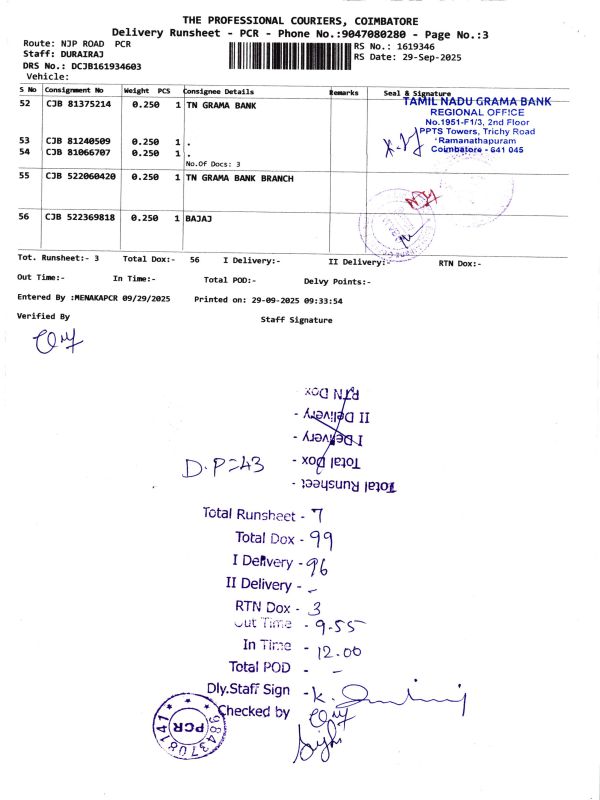 THE PROFESSIONAL COURIERS, COIMBATORE
Delivery Runsheet - PCR - Phone No.:9047080280 - Page No.:3
Route: NJP ROAD PCR
RS No.: 1619346
Staff: DURAIRAJ
RS Date: 29-Sep-2025
DRS No.: DCJB161934603
Vehicle:
S No Consignment No Weight PCS Consignee Details Remarks Seal & Signature
52 CJB 81375214 0.250 1 TN GRAMA BANK
TAMIL NADU GRAMA BANK
REGIONAL OFFICE
No.1951-F1/3, 2nd Floor
PPTS Towers, Trichy Road
Ramanathapuram
Coimbatore - 641 045
53 CJB 81240509 0.250 1 .
54 CJB 81066707 0.250 1 .
No.Of Docs: 3
55 CJB 522060420 0.250 1 TN GRAMA BANK BRANCH
56 CJB 522369818 0.250 1 BAJAJ
Tot. Runsheet:- 3 Total Dox:- 56 I Delivery:- II Delivery:- RTN Dox:-
Out Time:- In Time:- Total POD:- Delvy Points:-
Entered By :MENAKAPCR 09/29/2025 Printed on: 29-09-2025 09:33:54
Verified By Staff Signature
RTN Dox
II Delivery -
I Delivery -
Total Dox -
Total Runsheet -
D.P=43
Total Runsheet - 7
Total Dox - 99
I Delivery - 96
II Delivery - -
RTN Dox - 3
Out Time - 9.55
In Time - 12.00
Total POD - -
Dly.Staff Sign - K.
Checked by
PCR
9843708141